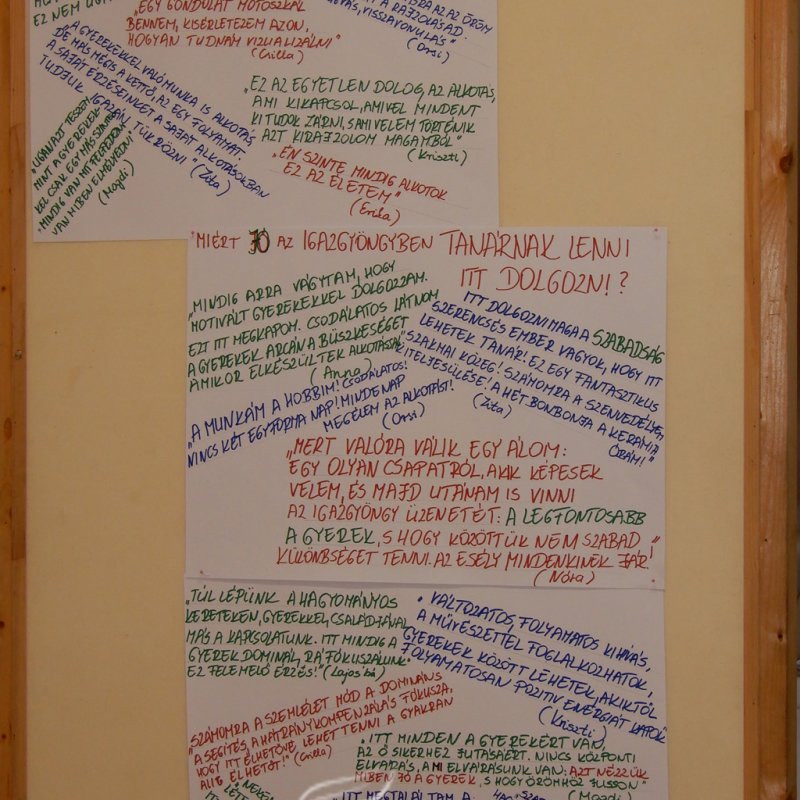 EZ NEM
„EGY GONDOLAT MOTOSZKÁL
BENNEM, KISÉRLETEZEM AZON,
HOGYAN TUDNÁM VIZUALIZÁLNI"
(Csilla)
AZ ÖRÖM
A RAJZOLÁSD.
VISSZAVONULÁS"
(Orsi)
„A GYEREKEKKEL VALÓ MUNKA IS ALKOTÁS
DE MÁS MÉGIS A KETTŐ, AZ EGY FOLYAMAT.
A SAJÁT ÉRZÉSEINKET A SAJÁT ALKOTÁSOKBAN
TUDJUK IGAZÁN TÜKRÖZNI" (Zita)
„EZ AZ EGYETLEN DOLOG, AZ ALKOTÁS,
AMI KIKAPCSOL, AMIVEL MINDENT
KI TUDOK ZÁRNI, S AMI VELEM TÖRTÉNIK
AZT KIRAJZOLOM MAGAMBÓL"
(Kriszti)
„UGANAZT TESZEM
MINT A GYEREKEK
VAN MIBEN ELMÉLYEDNI"
(Magdi)
„ÉN SZINTE MINDIG ALKOTOK
EZ AZ ÉLETEM"
(Erika)
MIÉRT JÓ AZ IGAZGYÖNGYBEN TANÁRNAK LENNI
ITT DOLGOZNI?
„MINDIG ARRA VÁGYTAM, HOGY
MOTIVÁLT GYEREKEKKEL DOLGOZZAM.
EZT ITT MEGKAPOM. CSODÁLATOS LÁTNOM
A GYEREKEK ARCÁN A BÜSZKESÉGET
AMIKOR ELKÉSZÜLTEK ALKOTÁSSAL"
(Anna)
ITT DOLGOZNI MAGA A SZABADSÁG
SZERENCSÉS EMBER VAGYOK, HOGY ITT
LEHETEK TANÁR! EZ EGY FANTASZTIKUS
SZAKMAI KÖZEG! SZÁMOMRA A SZENVEDÉLYEM
KITELJESÜLÉSE! A HÉT BONBONJA A KERÁMIA
ÓRÁM!"
(Zita)
„A MUNKÁM A HOBBIM! CSODÁLATOS!
NINCS KÉT EGYFORMA NAP! MINDENAP
MEGÉLEM AZ ALKOTÁST!
(Orsi)
„MERT VALÓRA VÁLIK EGY ÁLOM:
EGY OLYAN CSAPATRÓL, AKIK KÉPESEK
VELEM, ÉS MAJD UTÁNAM IS VINNI
AZ IGAZGYÖNGY ÜZENETÉT: A LEGFONTOSABB
A GYEREK, S HOGY KÖZÖTTÜK NEM SZABAD
KÜLÖNBSÉGET TENNI. AZ ESÉLY MINDENKINEK JÁR!"
(Nóra)
„TÚL LÉPÜNK A HAGYOMÁNYOS
KERETEKEN, GYEREKKEL, CSALÁDJÁVAL
MÁS A KAPCSOLATUNK. ITT MINDIG A
GYEREK DOMINÁL, RÁ FÓKUSZÁLUNK.
EZ FELEMELŐ ÉRZÉS!" (Lajos bá)
VÁLTOZATOS, FOLYAMATOS KIHÍVÁS,
A MŰVÉSZETTEL FOGLALKOZHATOK,
GYEREKEK KÖZÖTT LEHETEK, AKIKTŐL
FOLYAMATOSAN POZITIV ENERGIÁT KAPOK
(Kriszti)
„SZÁMOMRA A SZEMLÉLET MÓD A DOMINÁNS
A SEGITÉS, A HÁTRÁNYKOMPENZÁLÁS FÓKUSZA,
HOGY ITT ÉLHETŐVÉ LEHET TENNI A GYAKRAN
ALIG ÉLHETŐT!" (Csilla)
„ITT MINDEN A GYEREKÉRT VAN,
AZ Ő SIKERHEZ JUTÁSÁÉRT. NINCS KÖZPONTI
ELVÁRÁS, A MI ELVÁRÁSUNK VAN: AZT NÉZZÜK
MIBEN JÓ A GYEREK, S HOGY ÖRÖMHÖZ JUSSON"
(Magdi)
„ITT MEGTALÁLTAM A